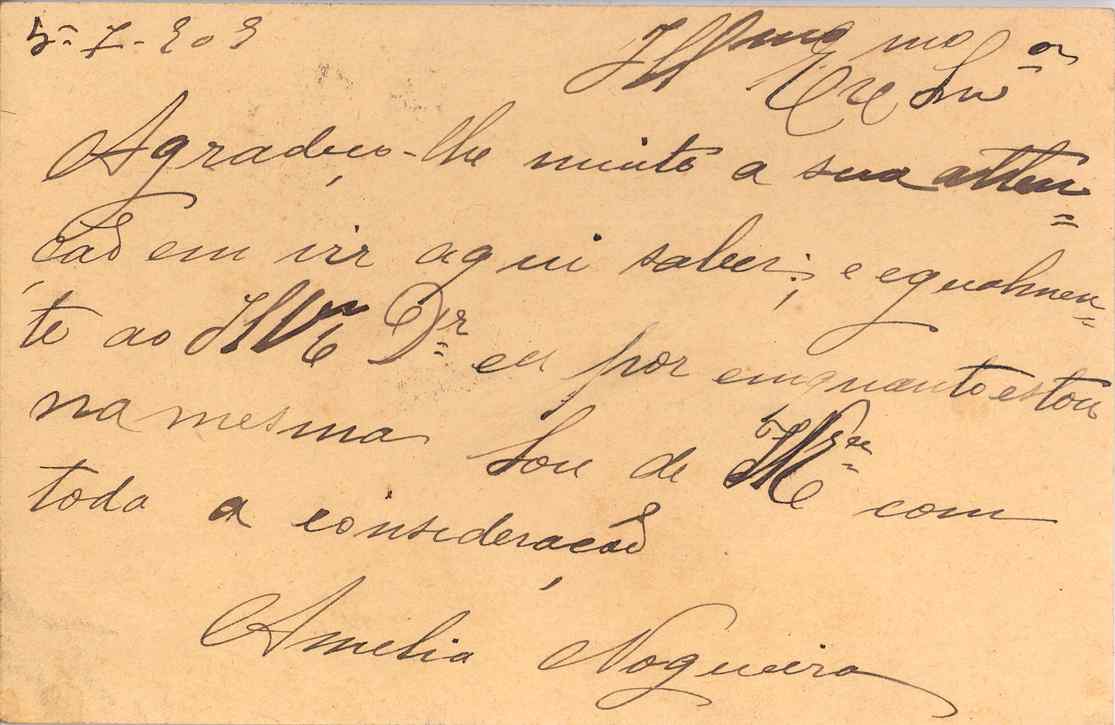 5-7-909
Illmo mo
Exe Snr
Agradeço-lhe muito a sua atten=
ção em vir aqui saber; e egualmen=
te ao Dr eu por emquanto estou
na mesma Sou de com
toda a consideração
Amelia Nogueira